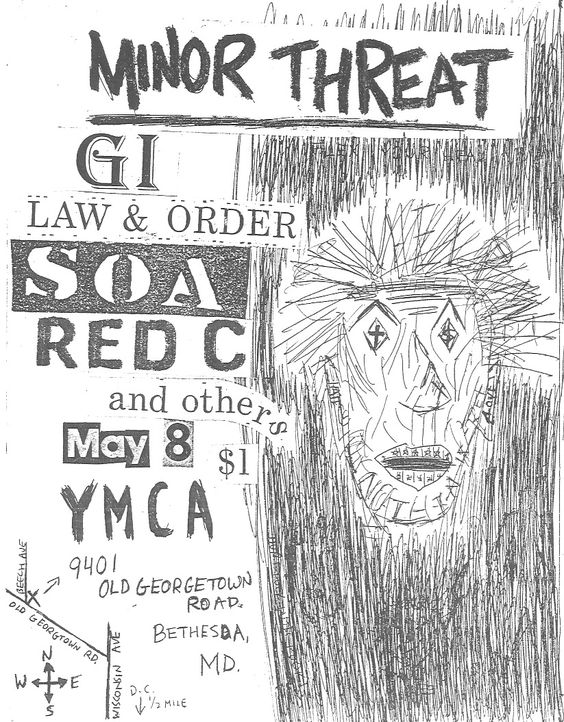 MINOR THREAT
GI
LAW & ORDER
SOA
RED C
and others
May 8
$1
YMCA
9401
OLD GEORGETOWN
ROAD.
BETHESDA,
MD.
BEECH AVE
X
OLD GEORGETOWN RD.
WISCONSIN AVE
N
W E
S
D.C.
1/2 MILE